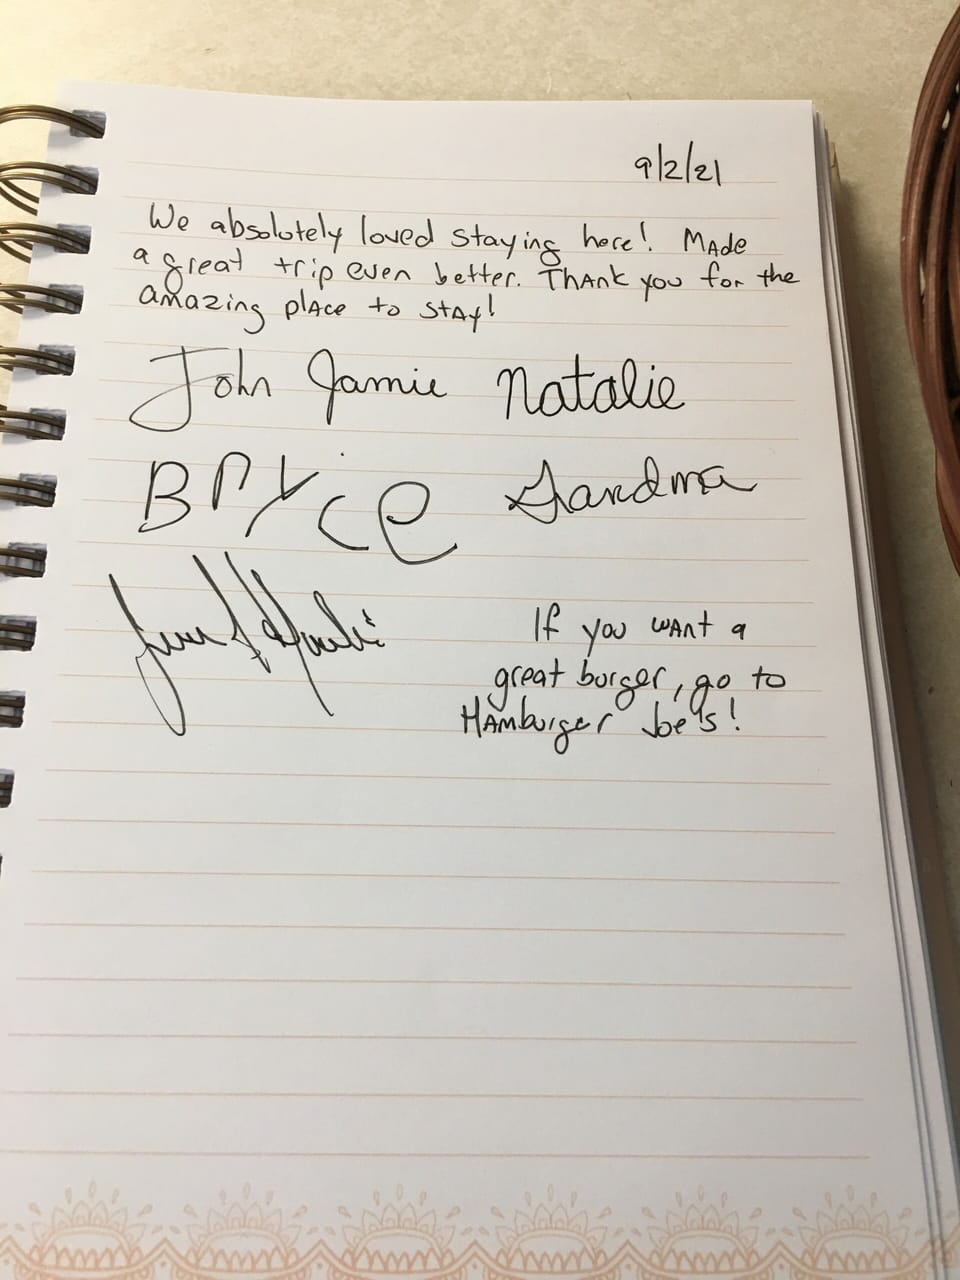 9/2/21
We absolutely loved staying here! Made
a great trip even better. Thank you for the
amazing place to stay!
John Jamie Natalie
Bryce Grandma
If you want a
great burger, go to
Hamburger Joe's!